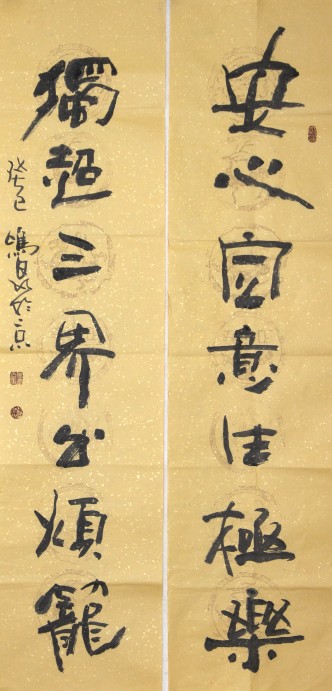 安心宝意住極樂
獨超三界出煩籠
癸巳 鳴 於京